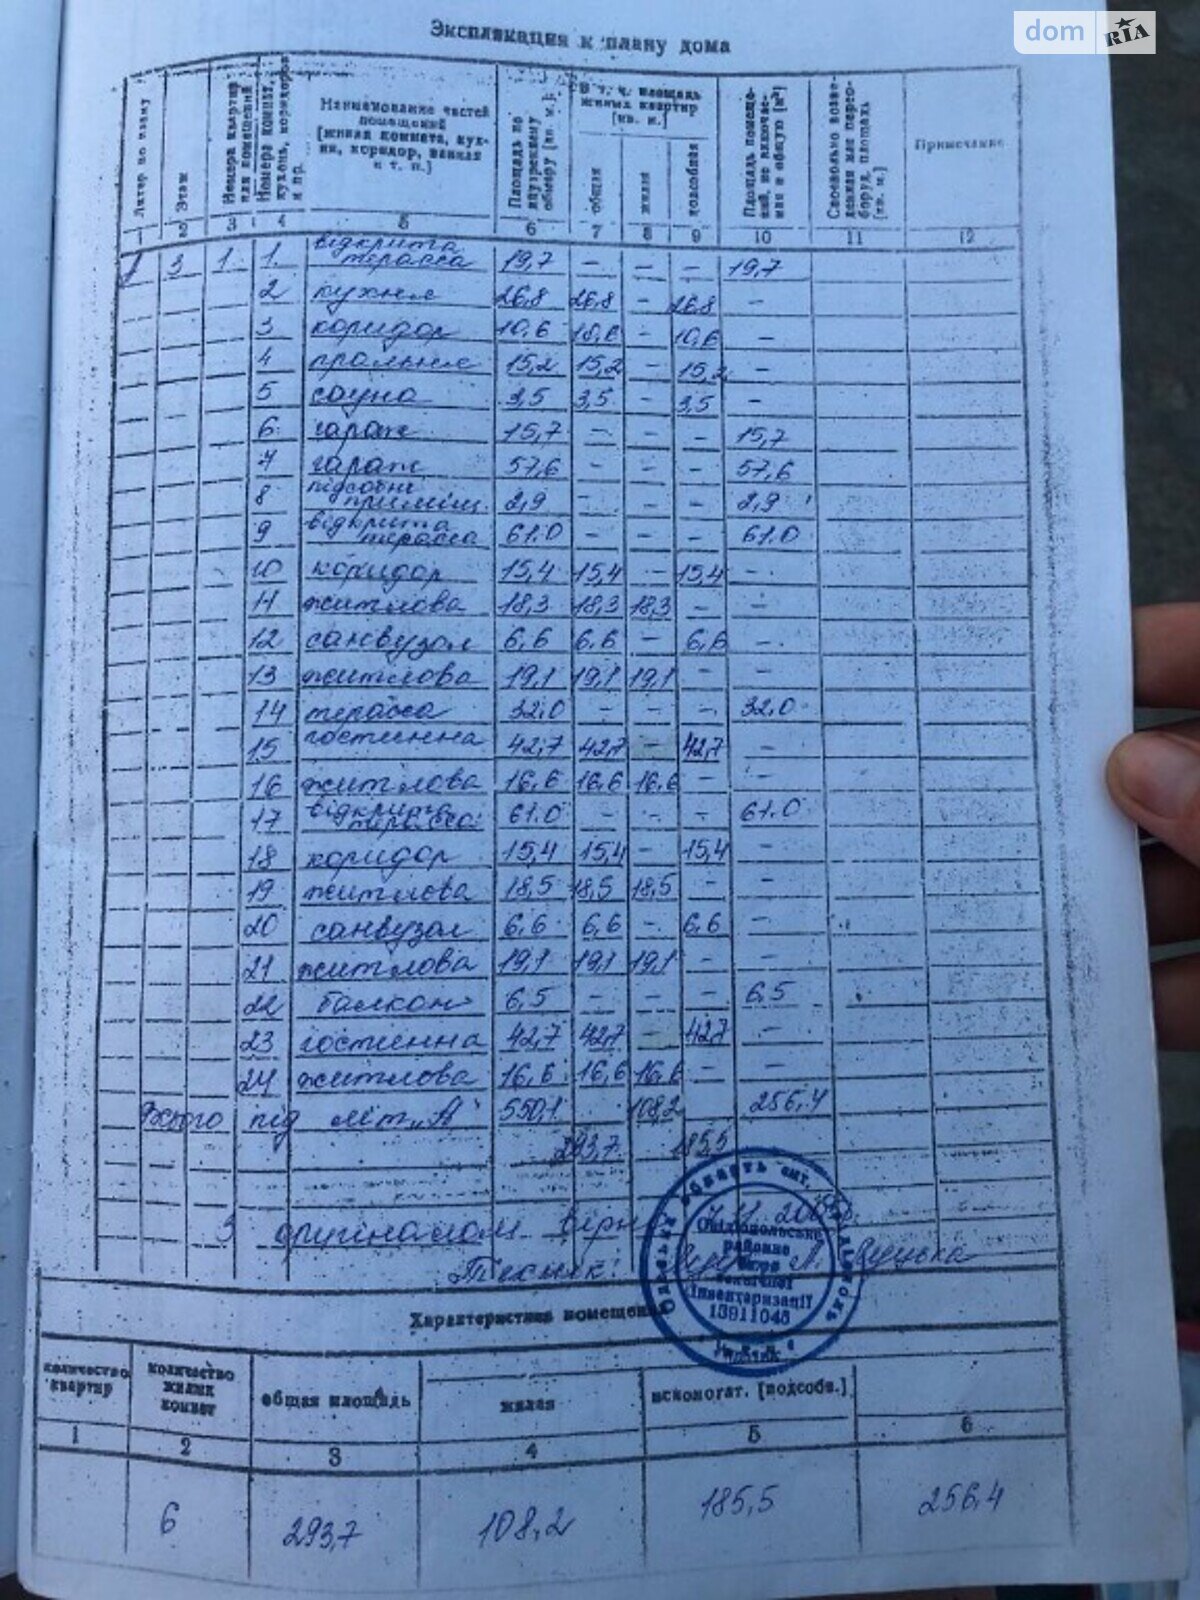 dom RIA
Экспликация к плану дома
Литер по плану
Этаж
Номера квартир или помещений
Номера комнат, кухонь, коридоров и пр.
Наименование частей
помещений
[жилая комната, кух-
ня, коридор, ванная
и т. п.]
Площадь по внутреннему обмеру [кв. м.]
В т. ч. площадь
жилых квартир
[кв. м.]
общая
жилая
подсобная
Площадь помеще-
ний, не включае-
мая в общую [м²]
Самовольно возве-
денная или перео-
боруд. площадь
[кв. м.]
Примечание
1 2 3 4 5 6 7 8 9 10 11 12
3 1 1. відкрита терасса 19,7 – – – 19,7
2 кухня 26,8 26,8 – 26,8 –
3 коридор 10,6 10,6 – 10,6 –
4 пральня 15,2 15,2 – 15,2 –
5 сауна 3,5 3,5 – 3,5 –
6 гараж 15,7 – – – 15,7
7 гараж 57,6 – – – 57,6
8 підсобне приміщ. 2,9 – – – 2,9
9 відкрита терасса 61.0 – – – 61.0
10 коридор 15,4 15,4 – 15,4 –
11 житлова 18,3 18,3 18,3 – –
12 санвузол 6,6 6,6 – 6,6 –
13 житлова 19,1 19,1 19,1 – –
14 терасса 32.0 – – – 32.0
15 гостинна 42,7 42,7 – 42,7 –
16 житлова 16,6 16,6 16,6 – –
17 відкрита терасса 61.0 – – – 61.0
18 коридор 15,4 15,4 – 15,4 –
19 житлова 18,5 18,5 18,5 – –
20 санвузол 6,6 6,6 – 6,6 –
21 житлова 19,1 19,1 19,1 – –
22 балкон 6,5 – – – 6,5
23 гостинна 42,7 42,7 – 42,7 –
24 житлова 16,6 16,6 16,6 – –
Всього під літ. „А" 550,1 108,2 256,4
293,7 185,5
З оригіналом вірно
Технік:
Овідіопольське
районне
бюро
технічної
інвентаризації
13911048
Характеристика помещения
количество
квартир
количество
жилих
комнат
общая площадь
жилая
вспомогат. [подсобн.]
1 2 3 4 5 6
6 293,7 108,2 185,5 256,4